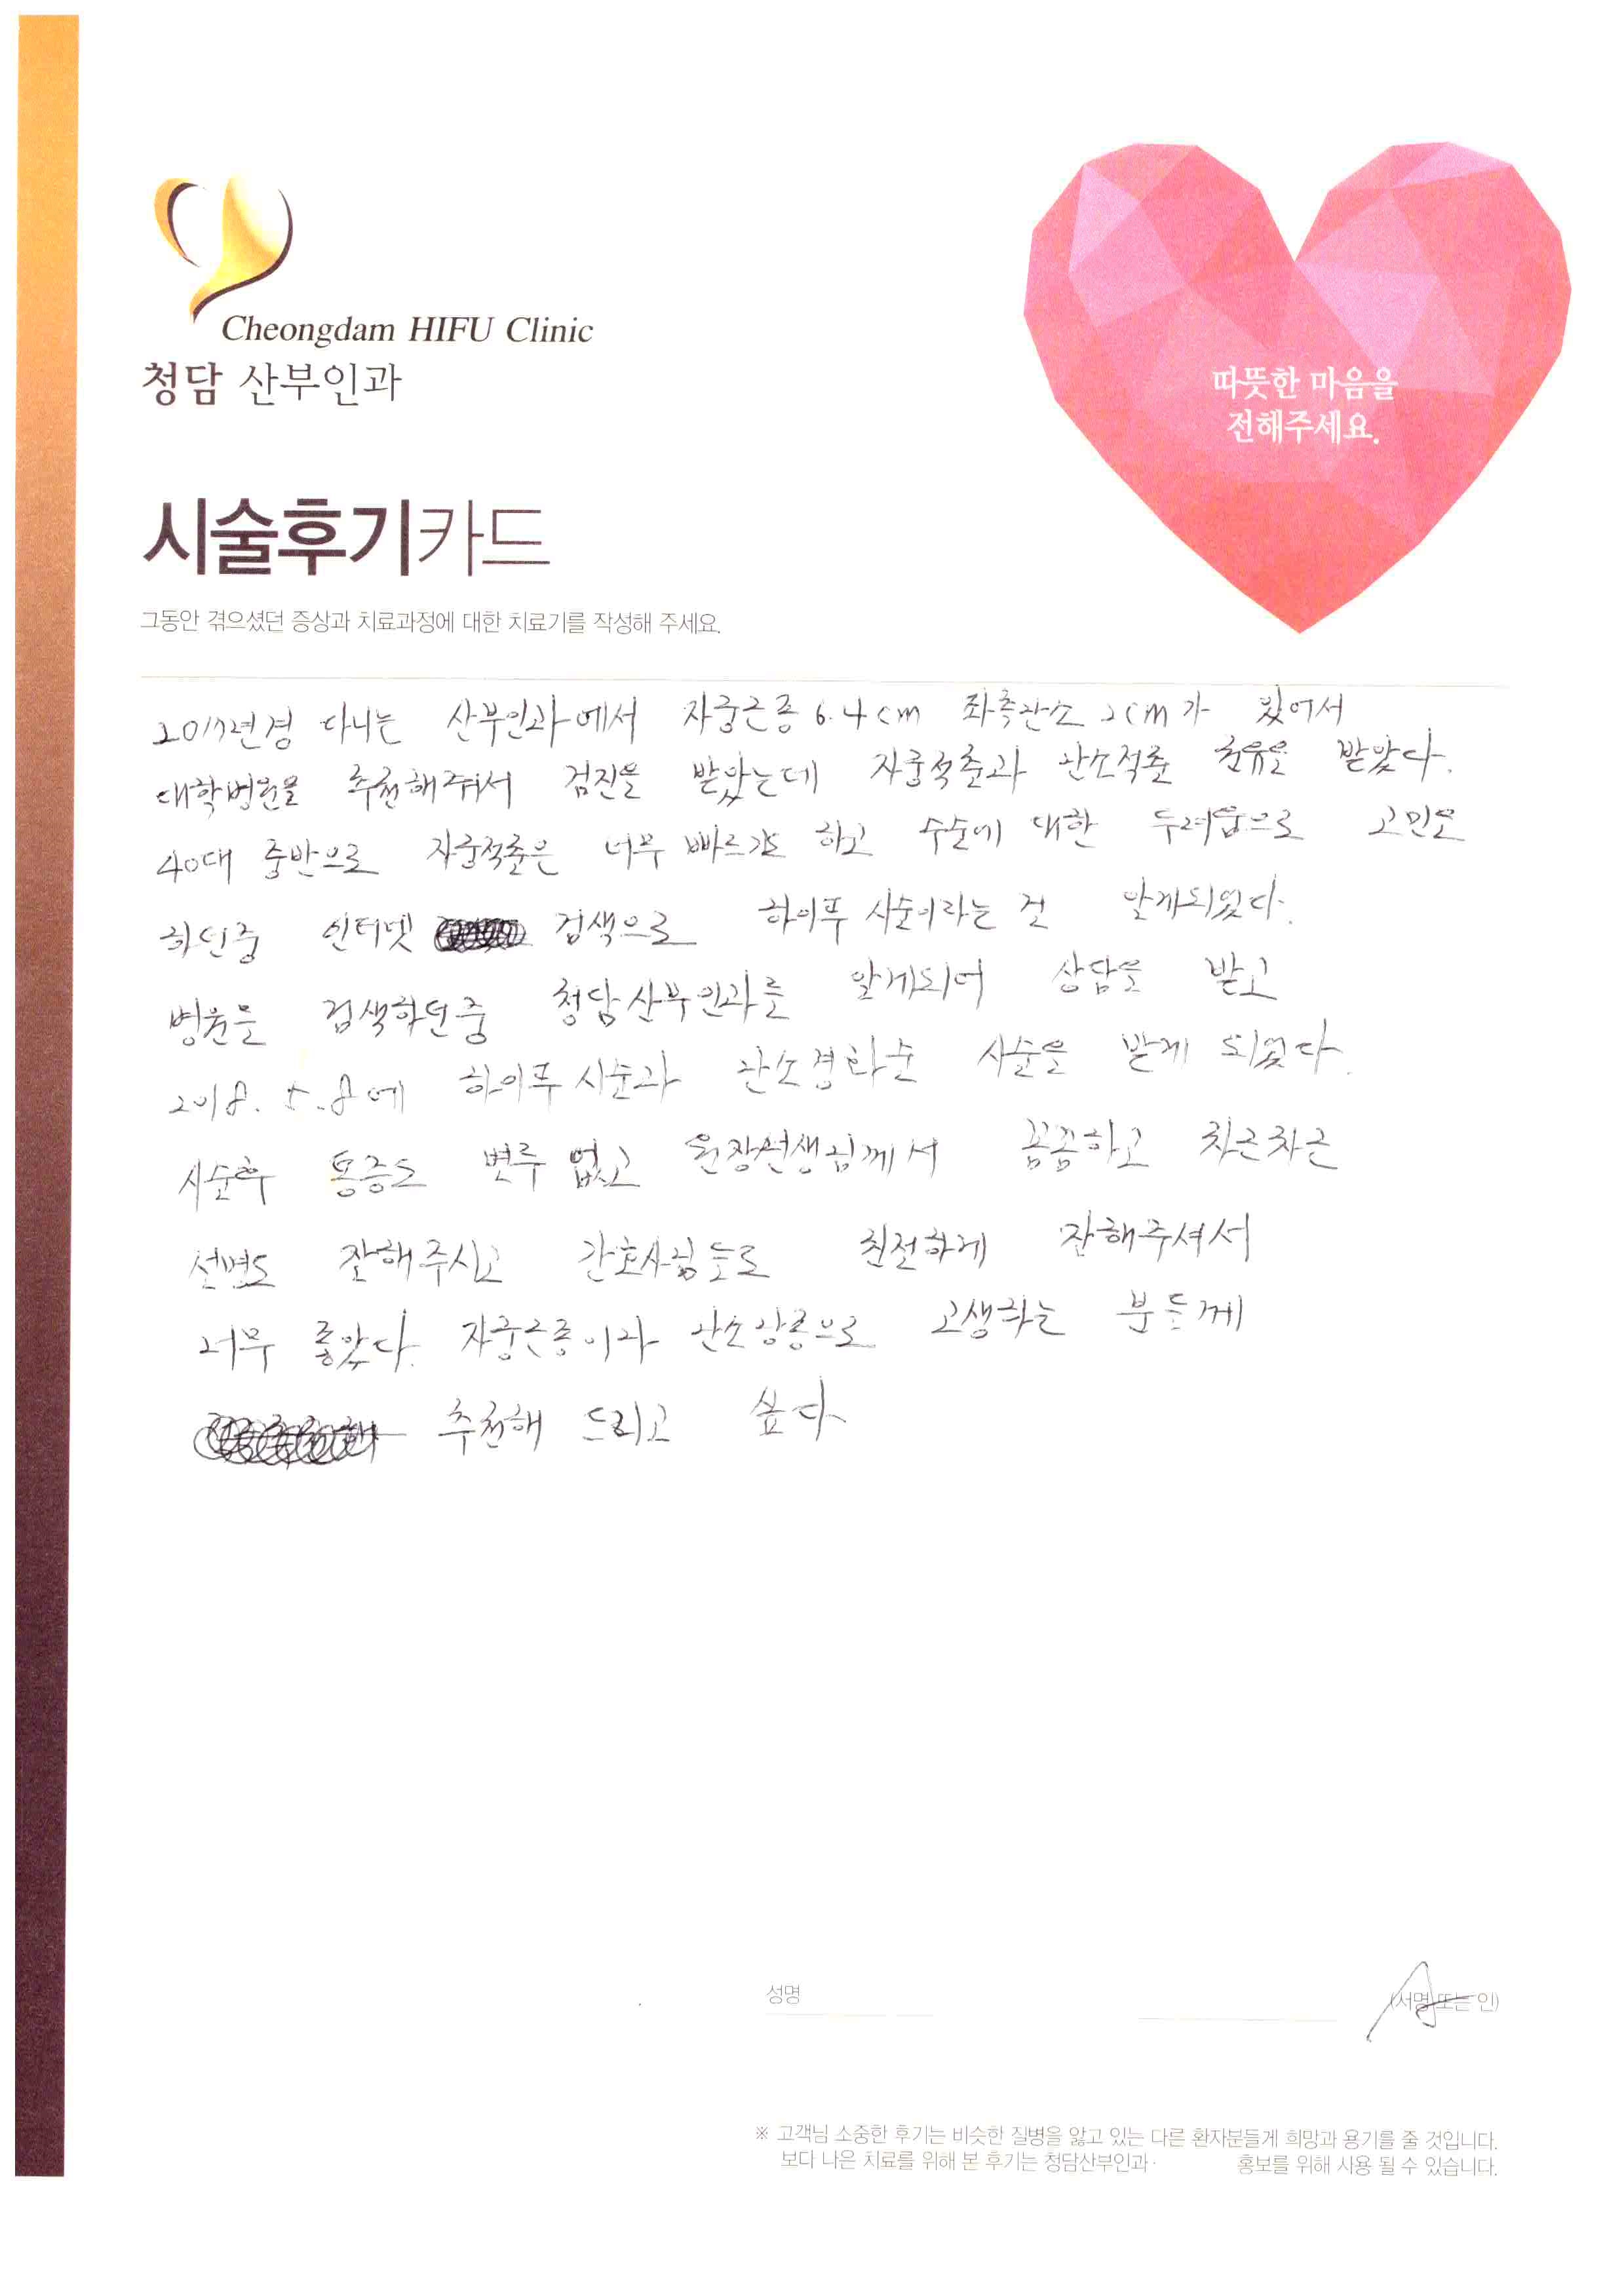 Cheongdam HIFU Clinic
청담 산부인과
따뜻한 마음을
전해주세요.
시술후기카드
그동안 겪으셨던 증상과 치료과정에 대한 치료기를 작성해 주세요.
2017년경 다니는 산부인과에서 자궁근종 6.4cm 좌측난소 2cm가 있어서
대학병원을 추천해줘서 검진을 받았는데 자궁적출과 난소적출 권유을 받았다.
40대 중반으로 자궁적출은 너무 빠르기도 하고 수술에 대한 두려움으로 고민도
하던중 인터넷 검색으로 하이푸 시술이라는 걸 알게되었다.
병원을 검색하던중 청담산부인과를 알게되어 상담을 받고
2018. 5.8에 하이푸 시술과 난소경화술 시술을 받게 되었다.
시술후 통증도 별루 없고 원장선생님께서 꼼꼼하고 차근차근
설명도 잘해주시고 간호사님들도 친절하게 잘해주셔서
너무 좋았다. 자궁근종이나 난소낭종으로 고생하는 분들께
추천해 드리고 싶다
성명
(서명 또는 인)
※ 고객님 소중한 후기는 비슷한 질병을 앓고 있는 다른 환자분들게 희망과 용기를 줄 것입니다.
보다 나은 치료를 위해 본 후기는 청담산부인과· 홍보를 위해 사용 될 수 있습니다.